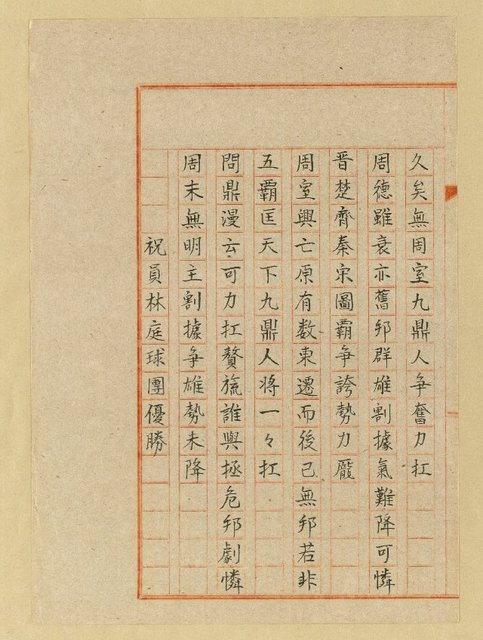 久矣無周室九鼎人爭奮力扛
周德雖衰亦舊邦群雄割據氣難降可憐
晋楚齊秦宋圖霸爭誇勢力龐
周室興亡原有数東遷而後已無邦若非
五霸匡天下九鼎人将一々扛
問鼎漫云可力扛贅旒誰與拯危邦劇憐
周末無明主割據爭雄勢未降
祝員林庭球團優勝